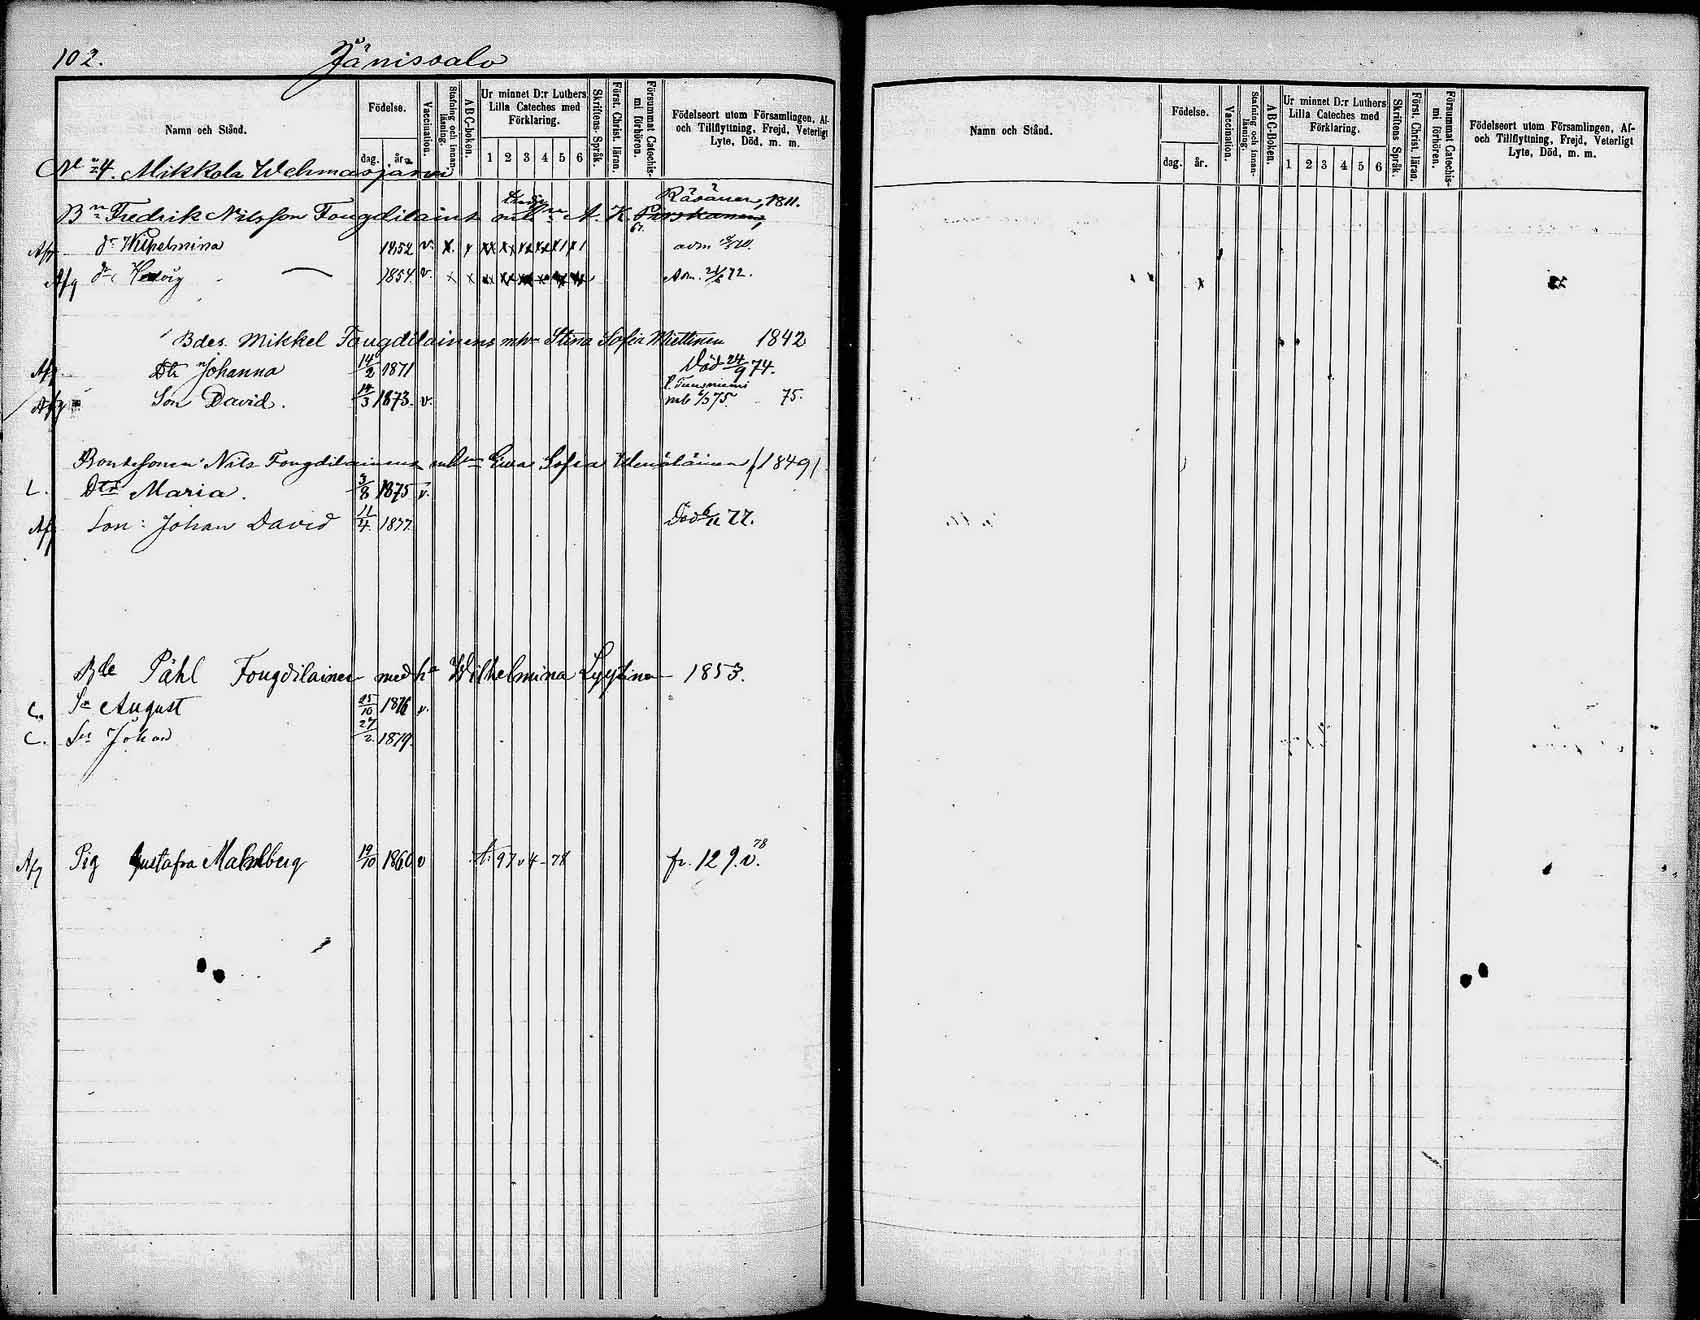 102. Jänissalo
Namn och Stånd.
Födelse.
dag. år.
Vaccination.
Stafning och innan-läsning.
ABC-boken.
Ur minnet D:r Luthers Lilla Cateches med Förklaring.
1 2 3 4 5 6
Skriftens Språk.
Först. Christ. läran.
Försummat Catechis-mi förhören.
Födelseort utom Församlingen, Af- och Tillflyttning, Frejd, Veterligt Lyte, Död, m. m.
No 4. Mikkola Wehmasjärvi
Bn Fredrik Nilsson Fougdilains A. K. Räsänen, 1811.
Afg dr Wilhelmina 1852 v. x. x
Afg dr Hedvig 1854 v. x x Adm. 72.
Bdes. Mikkel Fougdilainens mhu Stina Sofia Miettinen 1842
Afg Dtr Johanna 14/2 1871 Död 24/9 74.
Afg Son David. 1873. v. 75.
Bondesonen Nils Fougdilainens Eva Sofia 1849
C. Dtr Maria. 3/8 1875 v.
Afg Son: Johan David 11/4 1877. Död 77.
Bde Påhl Fougdilainen med ha Wilhelmina Lyytinen 1853.
C. Sn August 25/10 1876 v.
C. Sn Johan 27/2 1879.
Afg Pig Gustafva Malmberg 19/10 1860 v fr. 129. v. 78
Namn och Stånd.
Födelse.
dag. år.
Vaccination.
Stafning och innan-läsning.
ABC-boken.
Ur minnet D:r Luthers Lilla Cateches med Förklaring.
1 2 3 4 5 6
Skriftens Språk.
Först. Christ. läran.
Försummat Catechis-mi förhören.
Födelseort utom Församlingen, Af- och Tillflyttning, Frejd, Veterligt Lyte, Död, m. m.